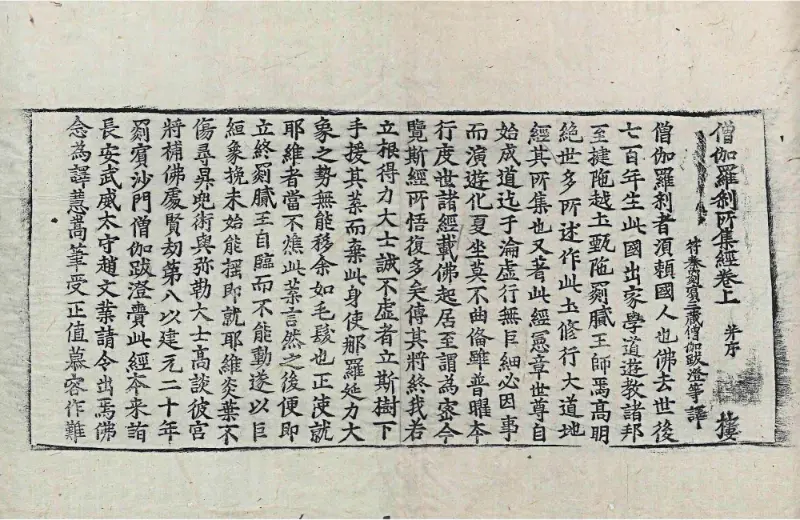 僧伽羅刹所集經卷上 并序 樓
符秦罽賓三藏僧伽跋澄等譯
僧伽羅刹者湏頼國人也佛去世後
七百年生此國出家學道遊教諸邦
至揵陁越土甄陁罽膩王師焉髙明
絶世多所述作此土修行大道地
經其所集也又著此經憲章世尊自
始成道迄于淪虚行無巨細必因事
而演遊化夏坐莫不曲俻雖普曜本
行度世諸經載佛起居至謂為宻今
覽斯經所悟復多矣傳其將終我若
立根得力大士誠不虚者立斯樹下
手援其葉而棄此身使那羅延力大
象之勢無能移余如毛髮也正使就
耶維者當不燋此葉言然之後便即
立終罽膩王自臨而不能動遂以巨
絙象挽未始能揺即就耶維炎葉不
傷尋昇兜術與弥勒大士髙談彼宫
將補佛處賢劫第八以建元二十年
罽賓沙門僧伽跋澄賷此經本来詣
長安武威太守趙文業請令出焉佛
念為譯慧嵩筆受正值慕容作難